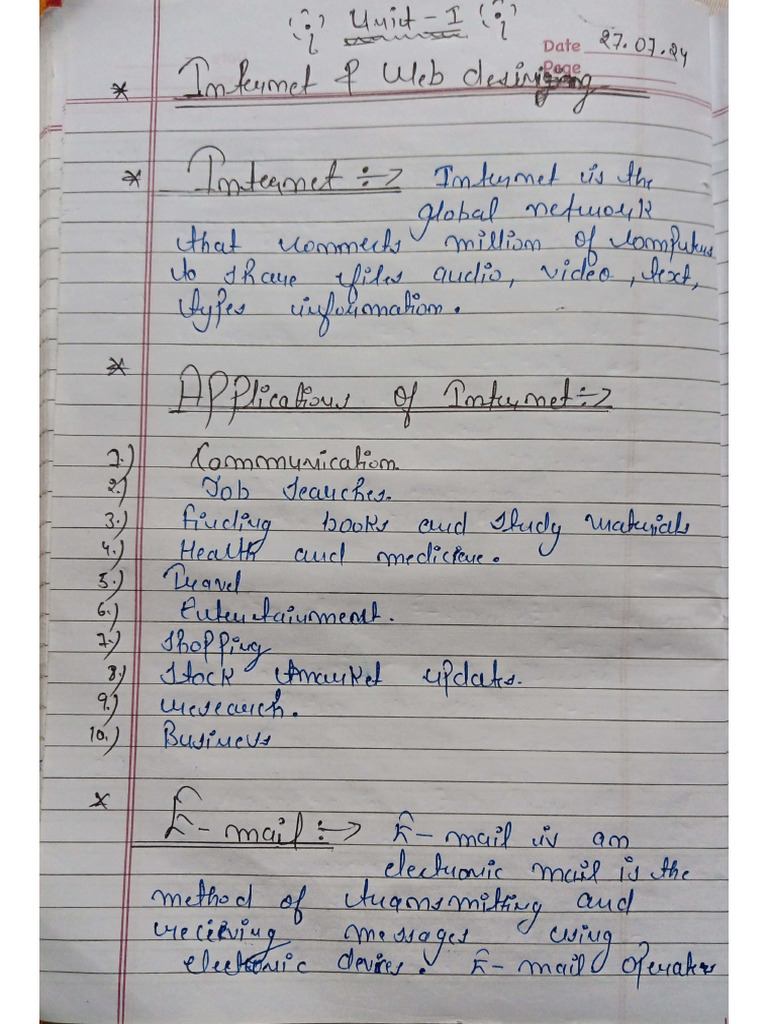 Unit - I
Date 27.07.24
Page
* Internet & Web desining
* Internet ÷> Internet is the
global network
that connects million of computers
to share files audio, video, text,
types information.
* Applications of Internet ÷>
1.) Communication
2.) Job searches.
3.) finding books and study materials
4.) Health and medicine.
5.) Travel
6.) Entertainment.
7.) Shopping
8.) Stock market updates.
9.) research.
10.) Business
* E-mail :-> E-mail is an
electronic mail is the
method of transmitting and
receiving messages using
electronic devices. E-mail operates